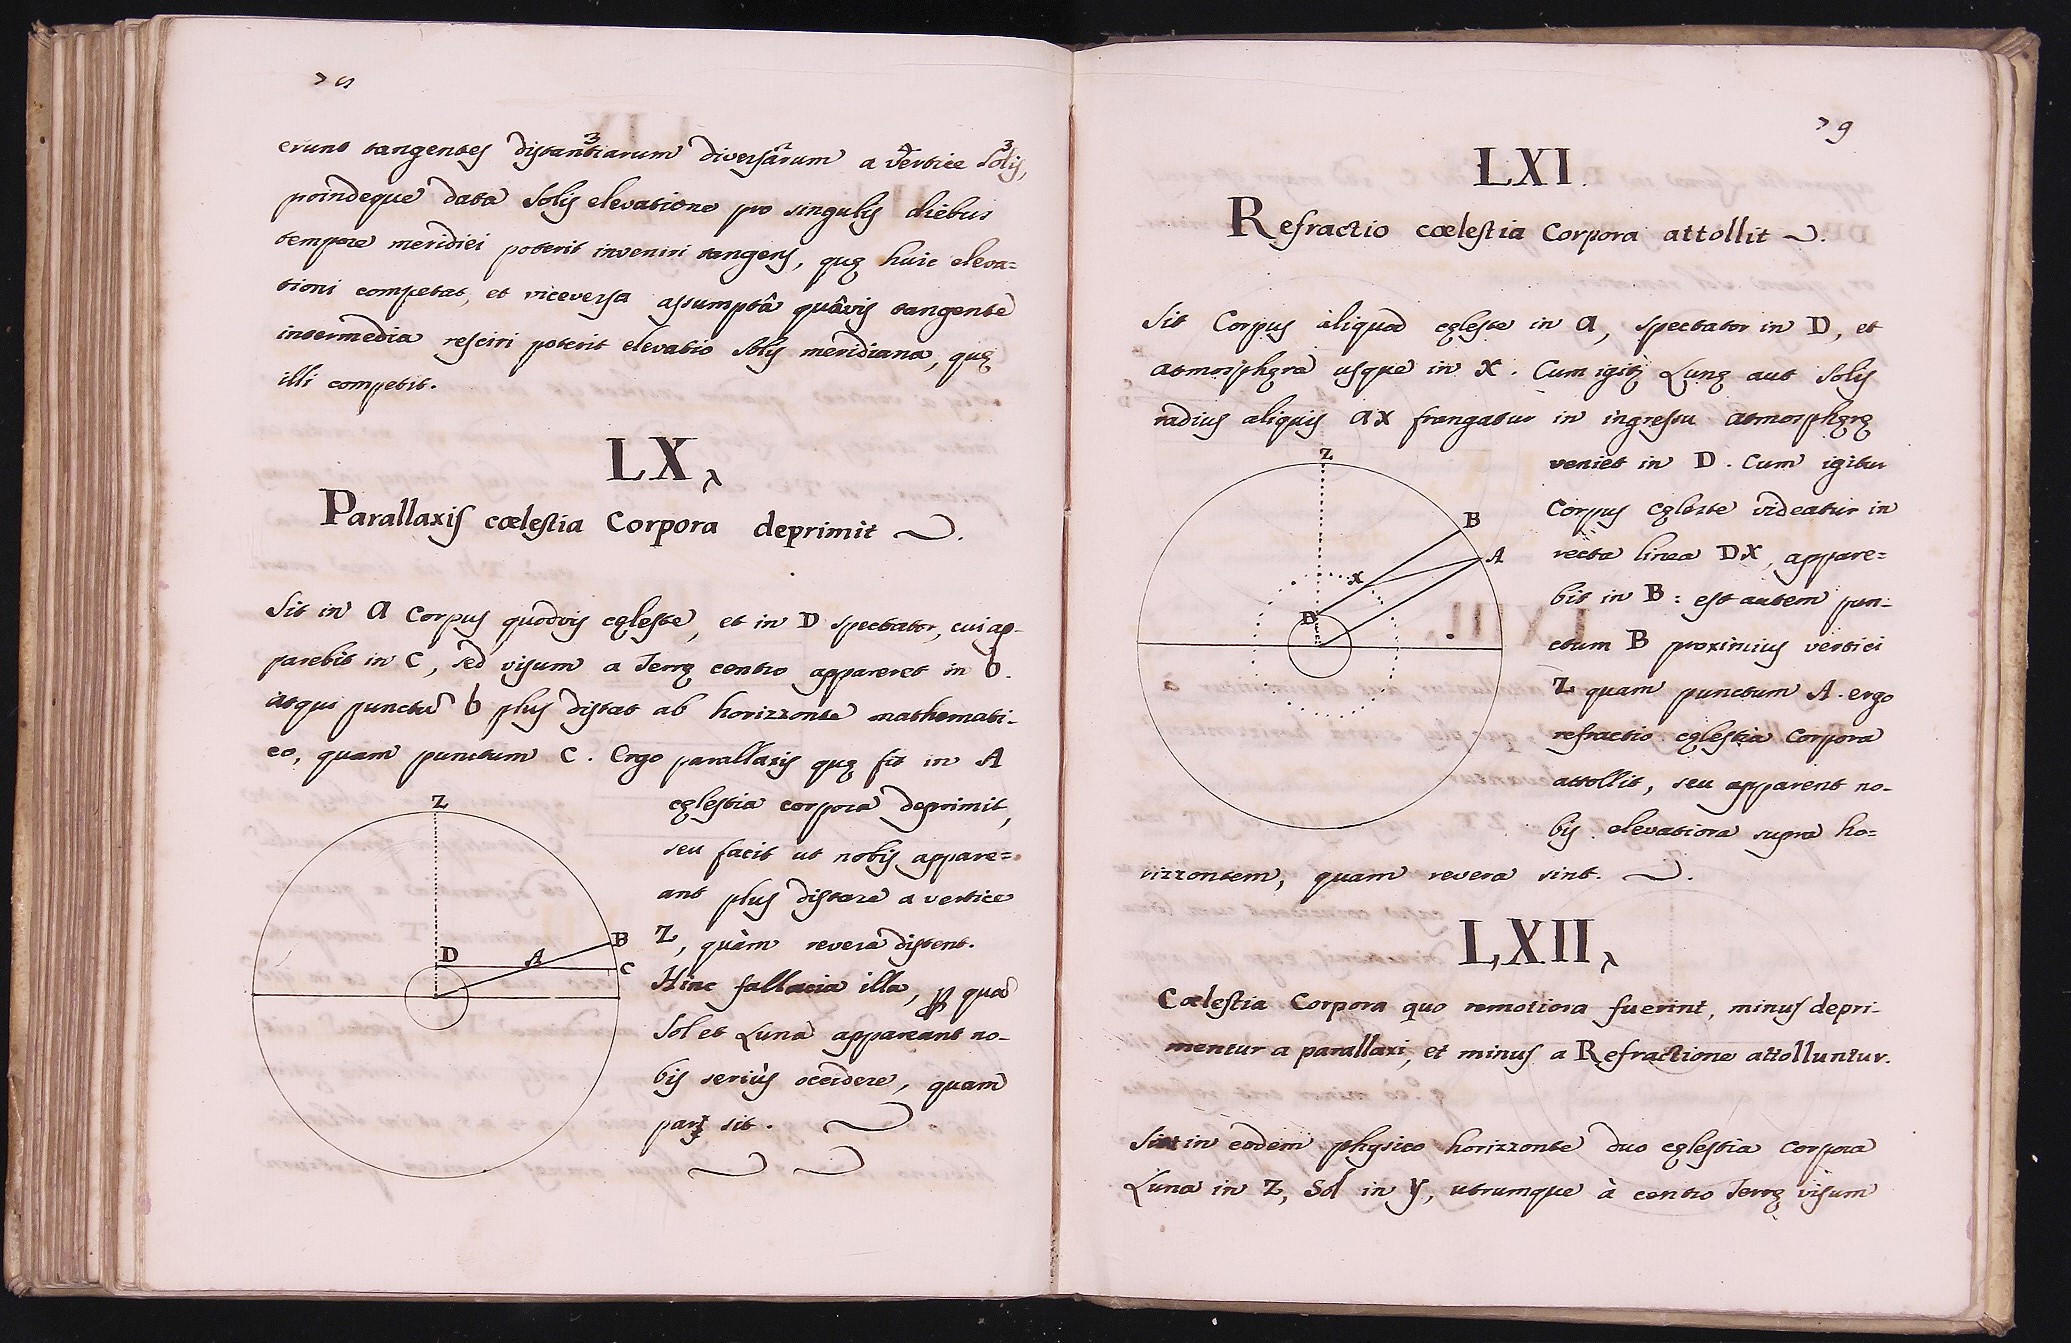 78
erunt tangentes distantiarum diversarum a vertice Solis,
proindeque data Solis elevatione pro singulis diebus
tempore meridiei poterit inveniri tangens, quę huic eleva=
tioni competat, et viceversa assumptâ quâvis tangente
intermedia resciri poterit elevatio Solis meridiana, quę
illi competit.
LX
Parallaxis cœlestia Corpora deprimit
Sit in a Corpus quodvis cęleste, et in D spectator, cui ap-
parebit in C, sed visum a Terrę centro appareret in b.
atqui punctū b plus distat ab horizzonte mathemati-
co, quam punctum C. Ergo parallaxis quę fit in A
cęlestia corpora deprimit,
seu facit ut nobis appare=
ant plus distare a vertice
Z, quàm revera distent.
Hinc fallacia illa, qua
Sol et Luna appareant no-
bis seriùs occidere, quam
par sit.
Z
D
A
B
C
79
LXI.
Refractio cœlestia Corpora attollit
Sit Corpus aliquod cęleste in a, spectator in D, et
atmosphęra usque in X. Cum igitꝫ Lunę aut Solis
radius aliquis ax frangatur in ingressu atmosphęrę
veniet in D. Cum igitur
Corpus cęleste videatur in
recta linea DX, appare=
bit in B: est autem pun-
ctum B proximius vertici
Z quam punctum A. ergo
refractio cęlestia Corpora
attollit, seu apparent no-
bis elevatiora supra ho=
rizzontem, quam revera sint.
Z
B
A
X
D
LXII
Cœlestia Corpora quo remotiora fuerint, minus depri-
mentur a parallaxi, et minus a Refractione attolluntur.
Sint in eodem physico horizzonte duo cęlestia Corpora
Luna in Z, Sol in y, utrumque à centro Terrę visum